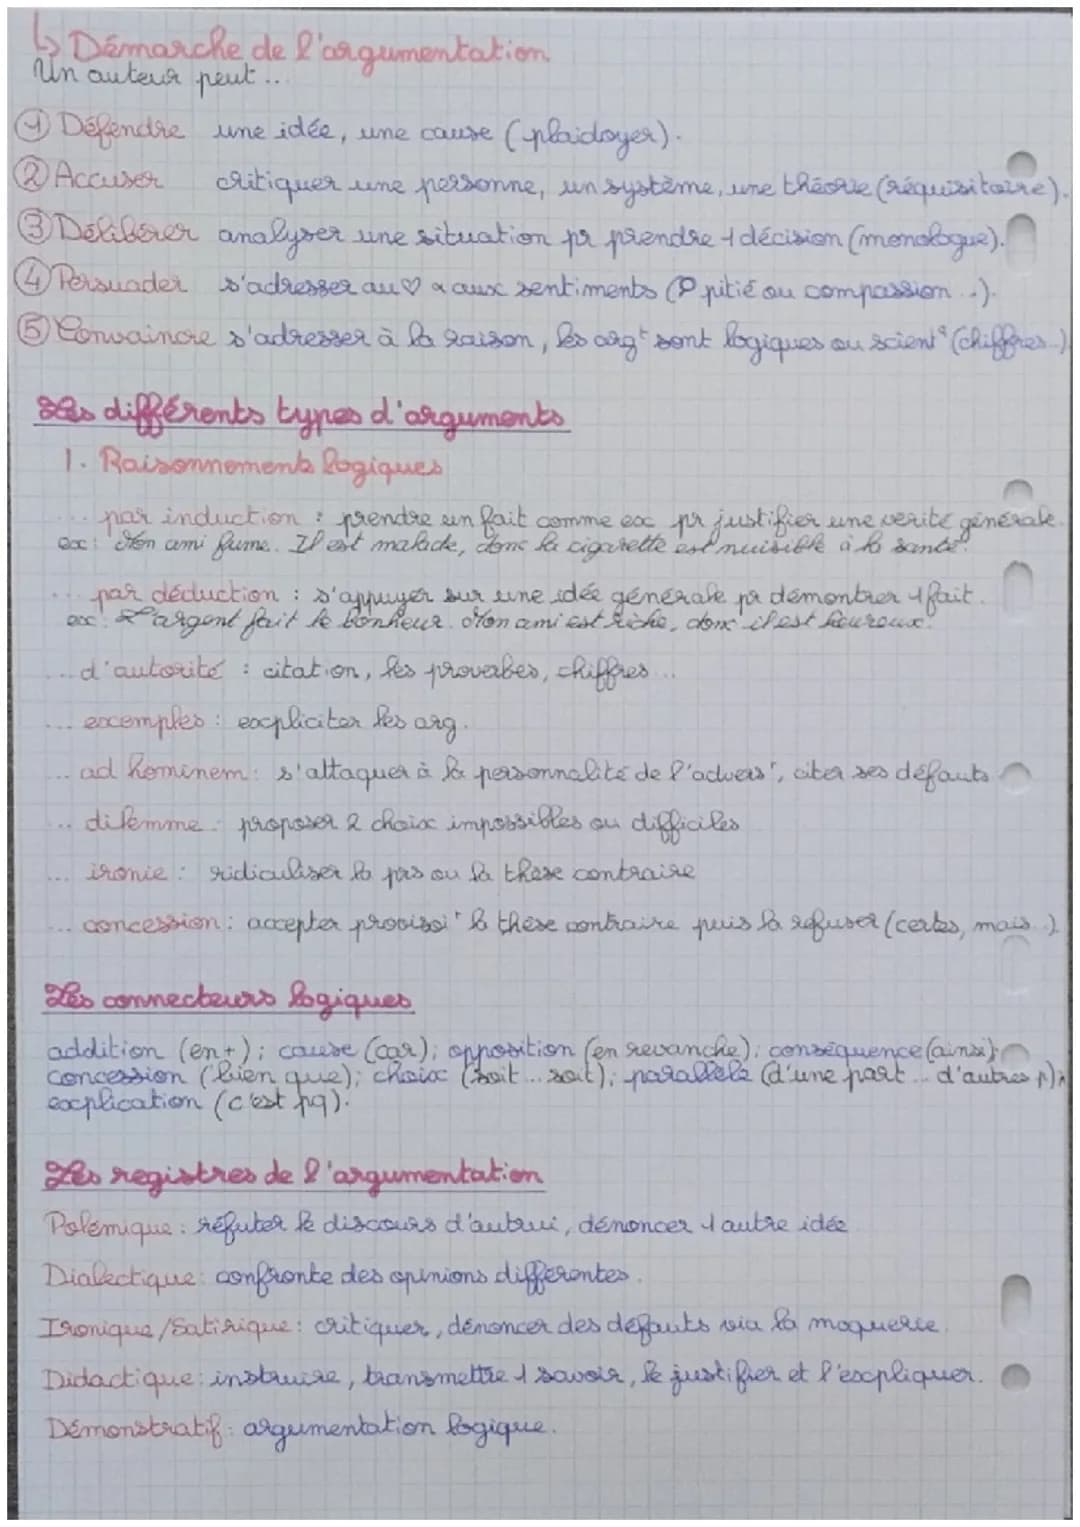 ↳ Démarche de l'argumentation
Un auteur peut...
① Défendre une idée, une cause (plaidoyer).
② Accuser critiquer une personne, un système, une théorie (réquisitoire).
③ Délibérer analyser une situation pr prendre 1 décision (monologue).
④ Persuader s'adresser au ♡ & aux sentiments (pitié ou compassion...).
⑤ Convaincre s'adresser à la raison, les argt sont logiques ou scient° (chiffres...)
Les différents types d'arguments
1. Raisonnements logiques
... par induction : prendre un fait comme ex pr justifier une vérité générale.
ex: Mon ami fume. Il est malade, donc la cigarette est nuisible à la santé.
... par déduction : s'appuyer sur une idée générale pr démontrer 1 fait.
ex: L'argent fait le bonheur. Mon ami est riche, donc il est heureux.
... d'autorité : citation, les proverbes, chiffres...
... exemples : expliciter les arg.
... ad hominem : s'attaquer à la personnalité de l'advers', citer ses défauts
... dilemme : proposer 2 choix impossibles ou difficiles
... ironie : ridiculiser la prs ou la thèse contraire
... concession : accepter provisoi' la thèse contraire puis la refuser (certes, mais..)
Les connecteurs logiques
addition (en+); cause (car); opposition (en revanche); conséquence (ainsi);
concession (bien que); choix (soit...soit); parallèle (d'une part... d'autres p);
explication (c'est pq).
Les registres de l'argumentation
Polémique : réfuter le discours d'autrui, dénoncer 1 autre idée
Dialectique : confronte des opinions différentes.
Ironique/Satirique : critiquer, dénoncer des défauts via la moquerie.
Didactique : instruire, transmettre 1 savoir, le justifier et l'expliquer.
Démonstratif : argumentation logique.